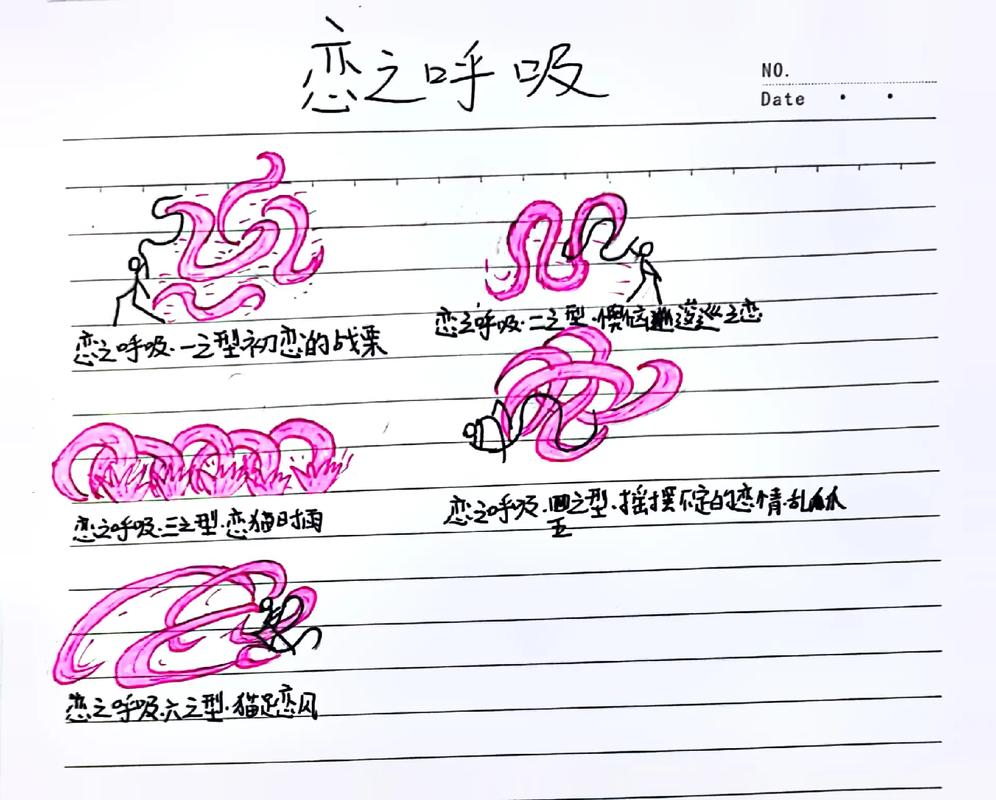 恋之呼吸
NO.
Date
恋之呼吸·一之型·初恋的战栗
恋之呼吸·二之型·懊恼巡之恋
恋之呼吸·三之型·恋猫时雨
恋之呼吸·之型·摇摆不定的恋情·乱爪
五
恋之呼吸·六之型·猫足恋风